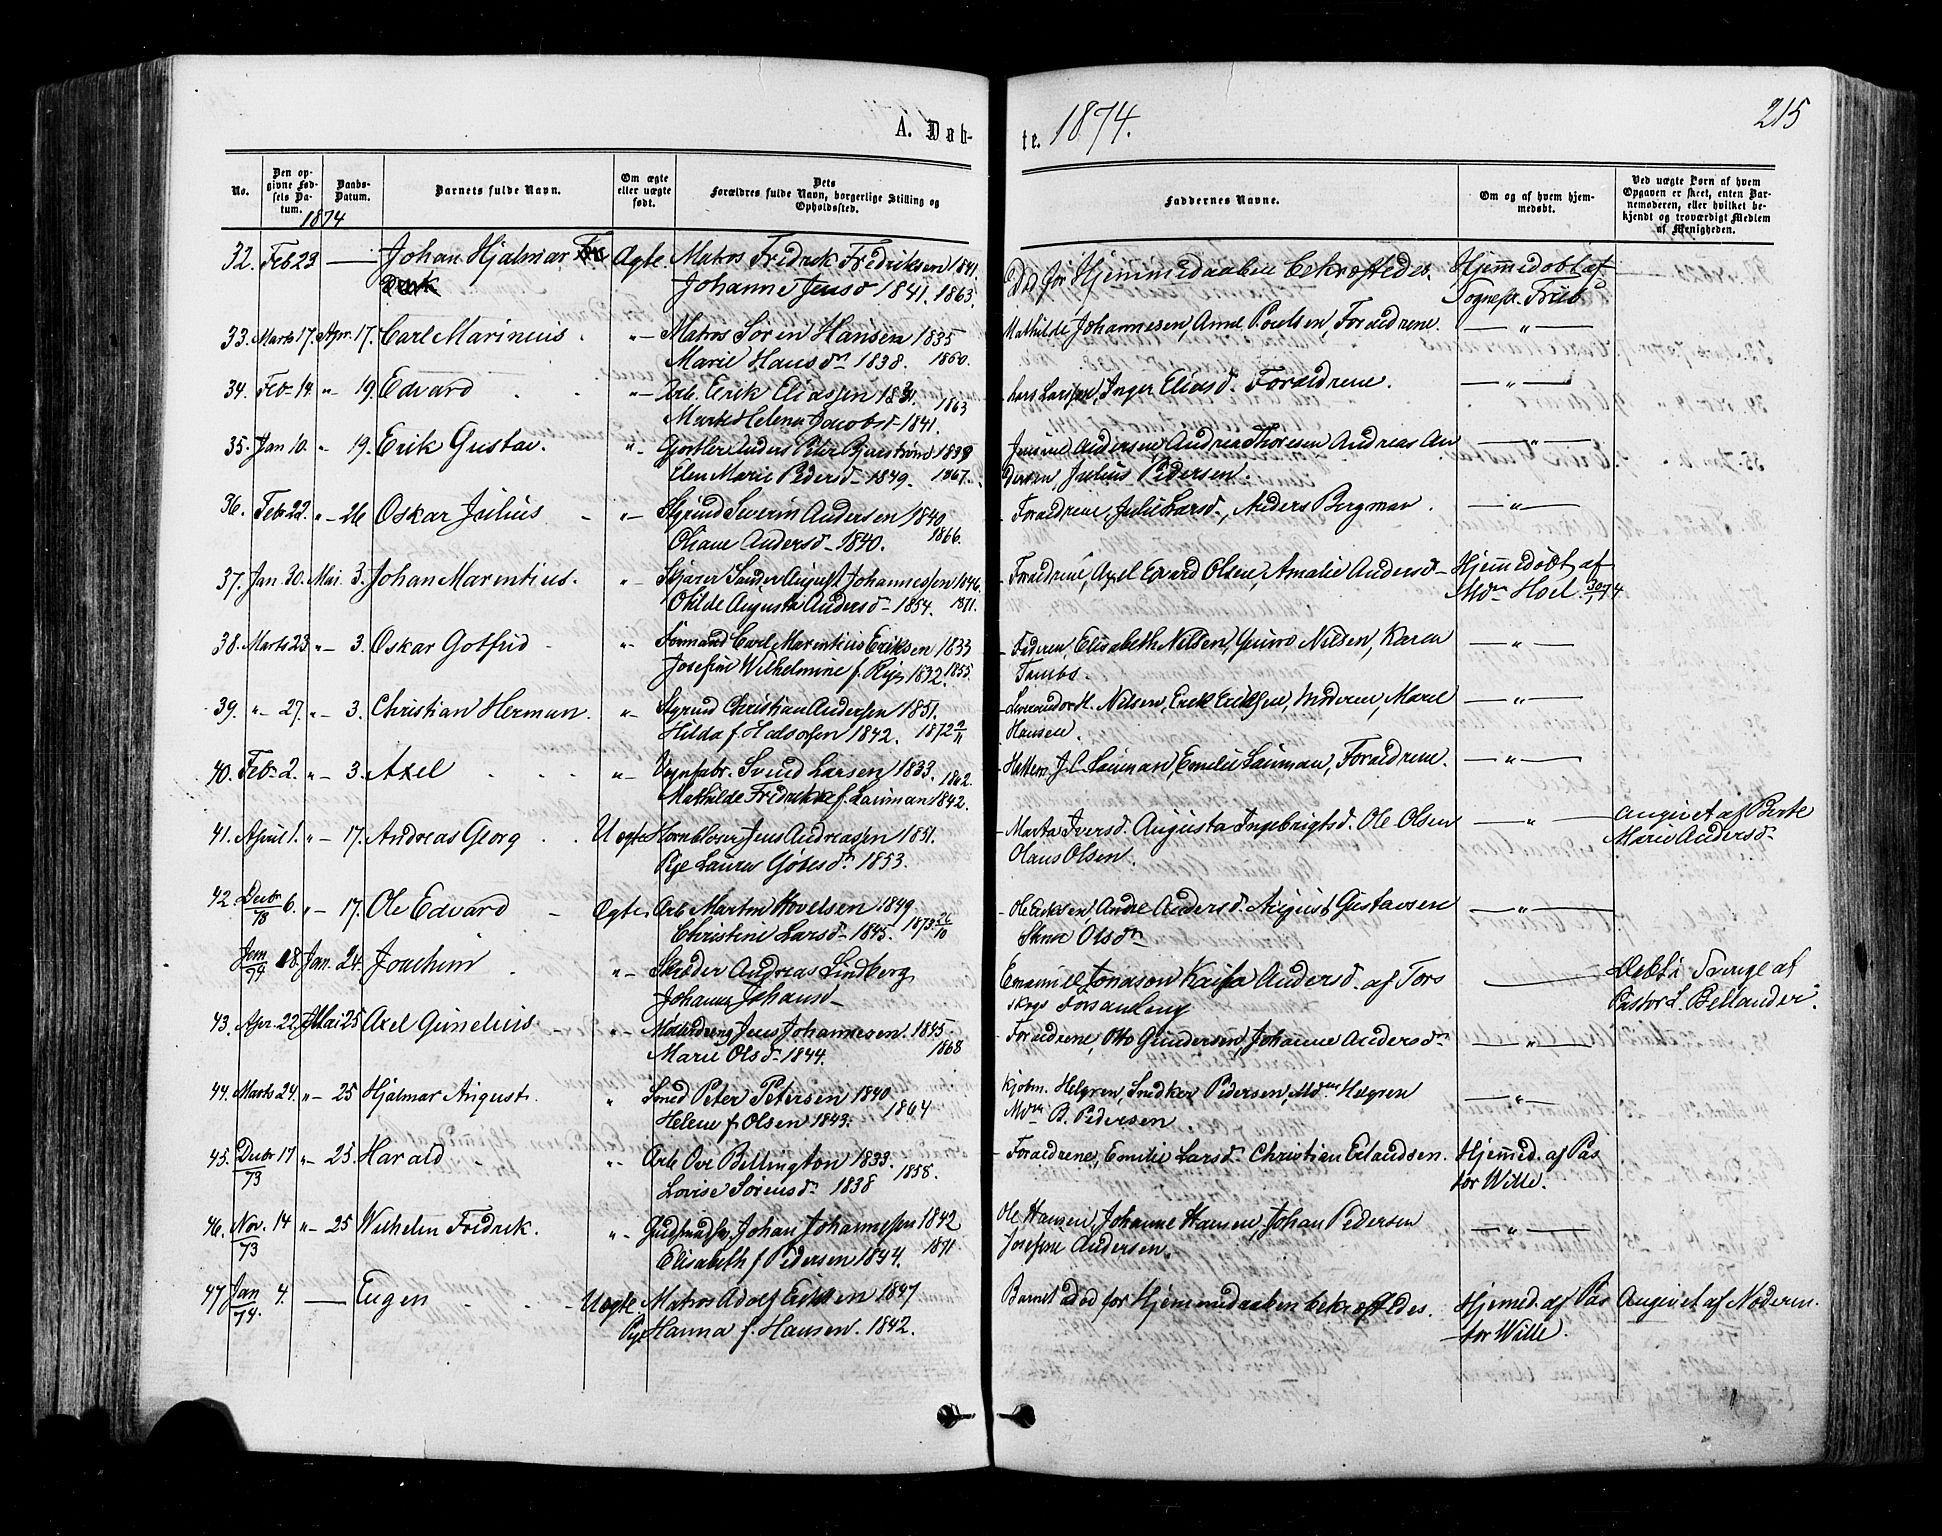 A. Døb-
te. 1874.
215
No.
Den op-
givne Fød-
sels Da-
tum.
Daabs-
Datum.
Barnets fulde Navn.
Om ægte
eller uægte
født.
Dets
Forældres fulde Navn, borgerlige Stilling og
Opholdssted.
Faddernes Navne.
Om og af hvem hjem-
medøbt.
Ved uægte Børn af hvem
Opgaven er skeet, enten Bar-
nemoderen, eller hvilket be-
kjendt og troværdigt Medlem
af Menigheden.
1874
32. Feb 23 — Johan Hjalmar Ægte. Matros Fredrik Fredriksen 1841.
Johanne Jensd 1841. 1863.
Død før Hjemmedaaben bekræftedes. Hjemmedøbt af
Sognepr.
33. Marts 17. Apr. 17. Carl Marinius. "- Matros Søren Hansen 1835
Marie Hansdn 1838. 1860.
Mathilde Johannesen, Anne Poulsen, Forældrene. — " —
34. Feb 14. "- 19. Edvard "- Arb. Erik Eliassen
Helena Jacobsd 1841. 1863
Lars Larsen, Inger Eliasd. Forældrene. — " —
35. Jan 10. "- 19. Erik Gustav. "- Gjørtler Anders Peter
Elen Marie Pedersd- 1849. 1867.
Andersen, Andrea Thoresen Andreas An
dersen, Julius Pedersen. — " —
36. Feb 22. "- 26 Oskar Julius "- Severin Andersen 1840
Oliane Andersd- 1840. 1866.
Forældrene, Julie Larsd-, Anders Bergman. — " —
37. Jan. 30. Mai. 3. Johan Marentius. "- August Johannessen 1846.
Otilde Augusta Andersd- 1854. 1871.
Forældrene, Axel Edvard Olsen, Amalie Andersd- Hjemmedøbt af
Mdm Hoel 30/1 74
38. Marts 23. "- 3. Oskar Gotfrid "- Formand Carl Marentius Eriksen 1833
Josefine Wilhelmine f. 1832. 1855.
Federen, Elisabeth Nilsen, Nilsen, Karen
Tambs. — " —
39. "- 27. "- 3. Christian Herman. "- Christian Andersen 1851.
Hilda f. Halvorsen 1842. 1872
Nilsen, Erik Eriksen, Moderen, Marie
Hansen. — " —
40. Feb 2. "- 3. Axel "- Vognfabr. Svend Larsen 1833. 1862.
Mathilde Fredrikke f. Lauman 1842.
J. C. Lauman, Emilie Lauman, Forældrene. — " —
41. April 1. "- 17. Andreas Georg Uægte Hornblæser Jens Andreassen 1851.
Pige Laura 1853.
Marta Iversd. Augusta Ingebrigtsd. Ole Olsen
Olaus Olsen. — " — Angivet af Berte
Marie Andersd-
42. Decbr 6. "- 17. Ole Edvard - Ægte. Arb Martin Hovelsen 1849
73
Christine Larsd- 1845. 1873 26/10
Ole Eriksen, Andersd. August Gustavsen
Olsdn — " —
Jan 18. Jan. 24. Joachim "- Skræder Andreas Lindberg
74
Johanna Johansd-
Emanuel Jonason Kaisa Andersd. af Tors
skogs Forsamling — Døbt i Sverige af
Pastor L. Bellander.
43. Apr. 22. Mai 25 Axel Gunelius - "- Jens Johannesen. 1845.
Marie Olsd- 1844. 1868
Forældrene, Otto Gundersen, Johanne Andersd- — " —
44. Marts 24. "- 25 Hjalmar August. " Smed Peter Petersen 1840
Helene f. Olsen 1843. 1864
Kjøbm. Helgren, Snedker Pedersen, Mdm Helgren
Mdm B. Pedersen — " —
45. Decbr 17 "- 25. Harald "- Arb Ove Bellington 1833.
73
Lovise Sørensd- 1838 1858.
Forældrene, Emilie Larsd- Christian Erlandsen. Hjemmed. af Pas
tor Wille.
46. Nov. 14 "- 25 Wilhelm Fredrik. "- Johan Johannessen 1842
73
Elisabeth f. Pedersen 1844. 1871
Ole Hansen, Johanne Hansen, Johan Pedersen
Josefine Andersen. — " —
47 Jan 4. — Eugen Uægte. Matros Adolf Eriksen 1847
74.
Pige Hanna f. Hansen. 1842.
Barnet død før Hjemmedaaben bekræftedes. Hjemed. af Pas
tor Wille. Angivet af Moderen.